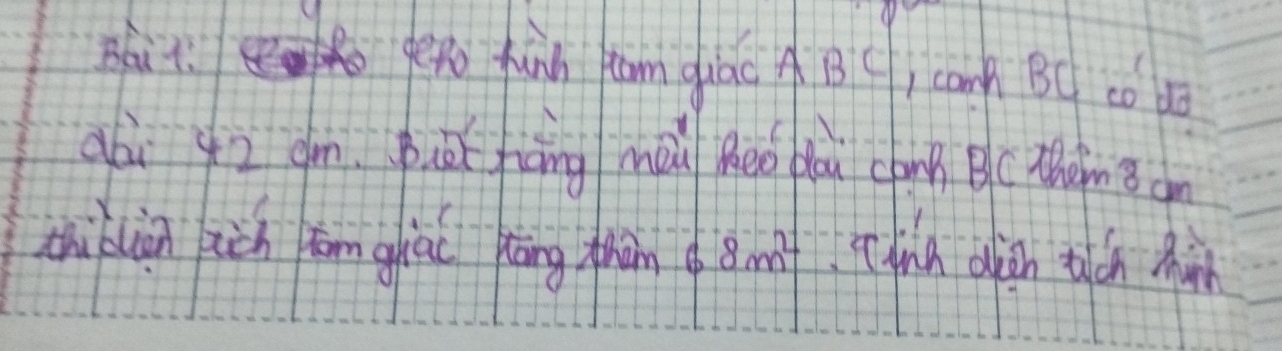 Bài 1: cho hình tam giác A B C, cạnh BC có độ
dài 42 dm. Biết rằng nếu kéo dài cạnh BC thêm 8 cm
thì diện tích tam giác tăng thêm 8 m². Tính diện tích hình